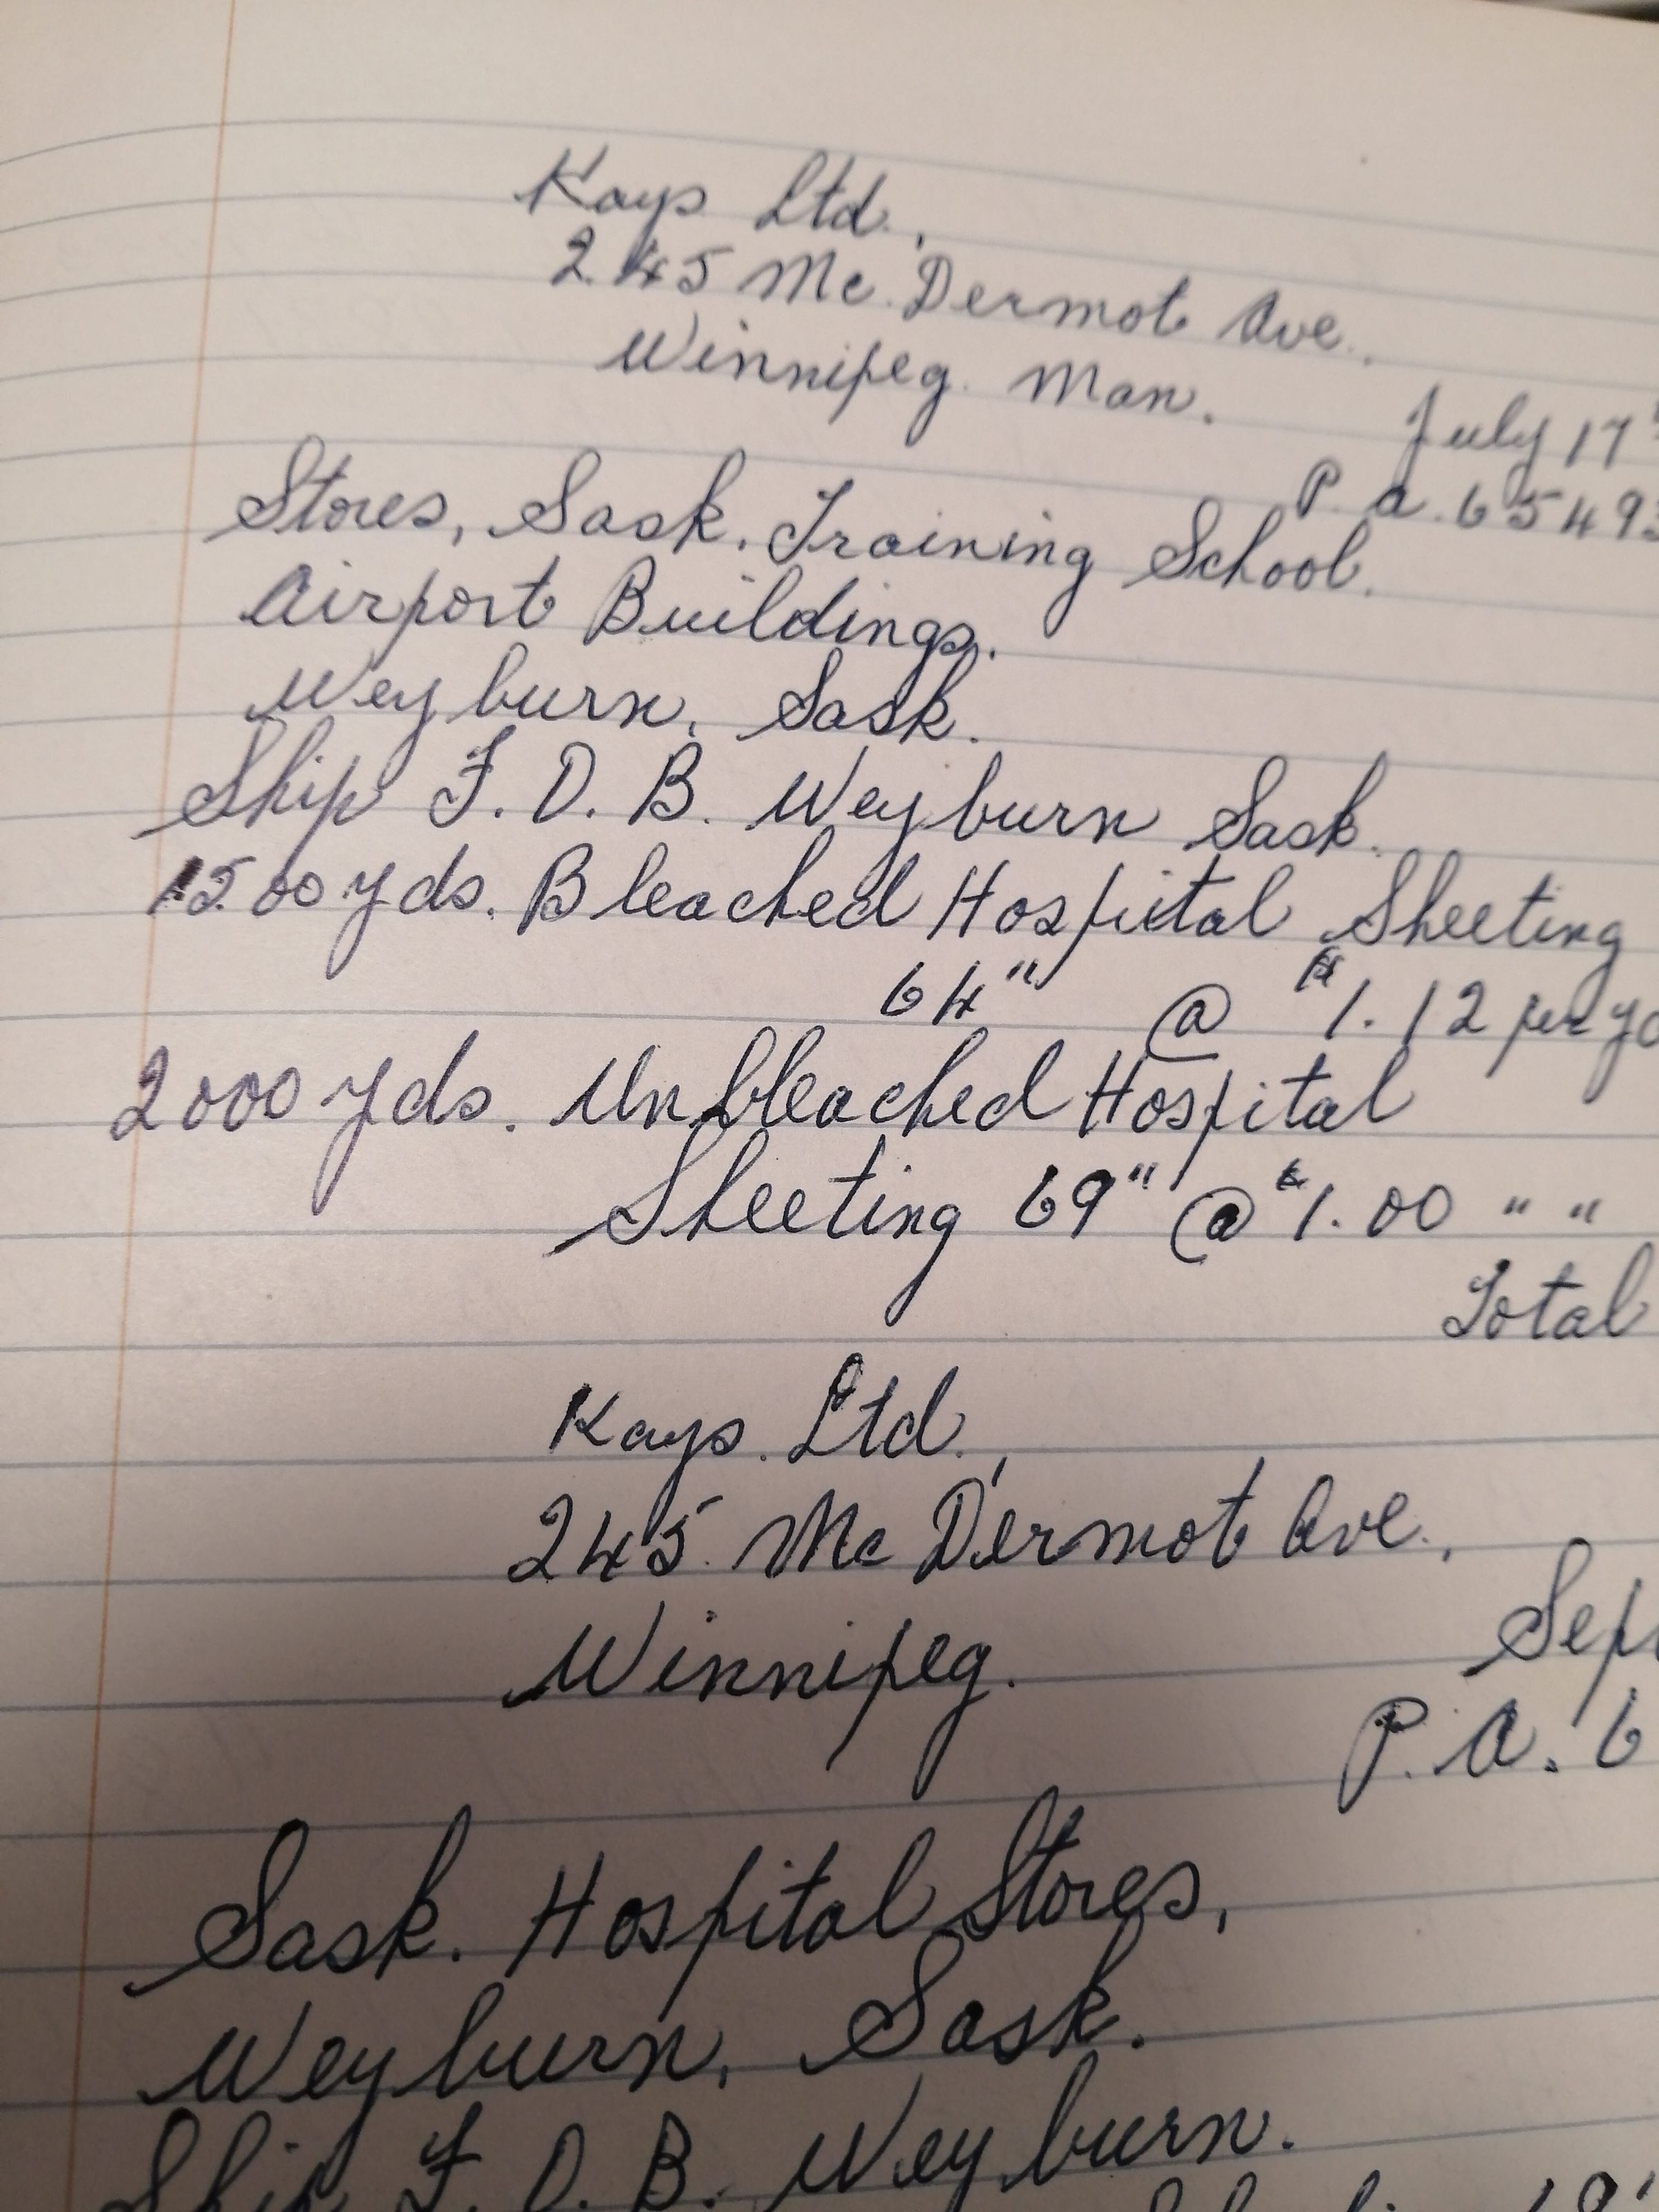 Kays Ltd.,
245 Mc. Dermot Ave.,
Winnipeg. Man.
July 17
P. A. 65493
Stores, Sask. Training School.
Airport Buildings.
Weyburn, Sask.
Ship F. O. B. Weyburn Sask.
1500 yds. Bleached Hospital Sheeting
64" @ $1.12 per yd
2000 yds. Unbleached Hospital
Sheeting 69" @ $1.00 " "
Total
Kays. Ltd.,
245. Mc Dermot Ave.,
Winnipeg.
Sept
P. A. 6
Sask. Hospital Stores,
Weyburn, Sask.
Ship F. O. B. Weyburn.